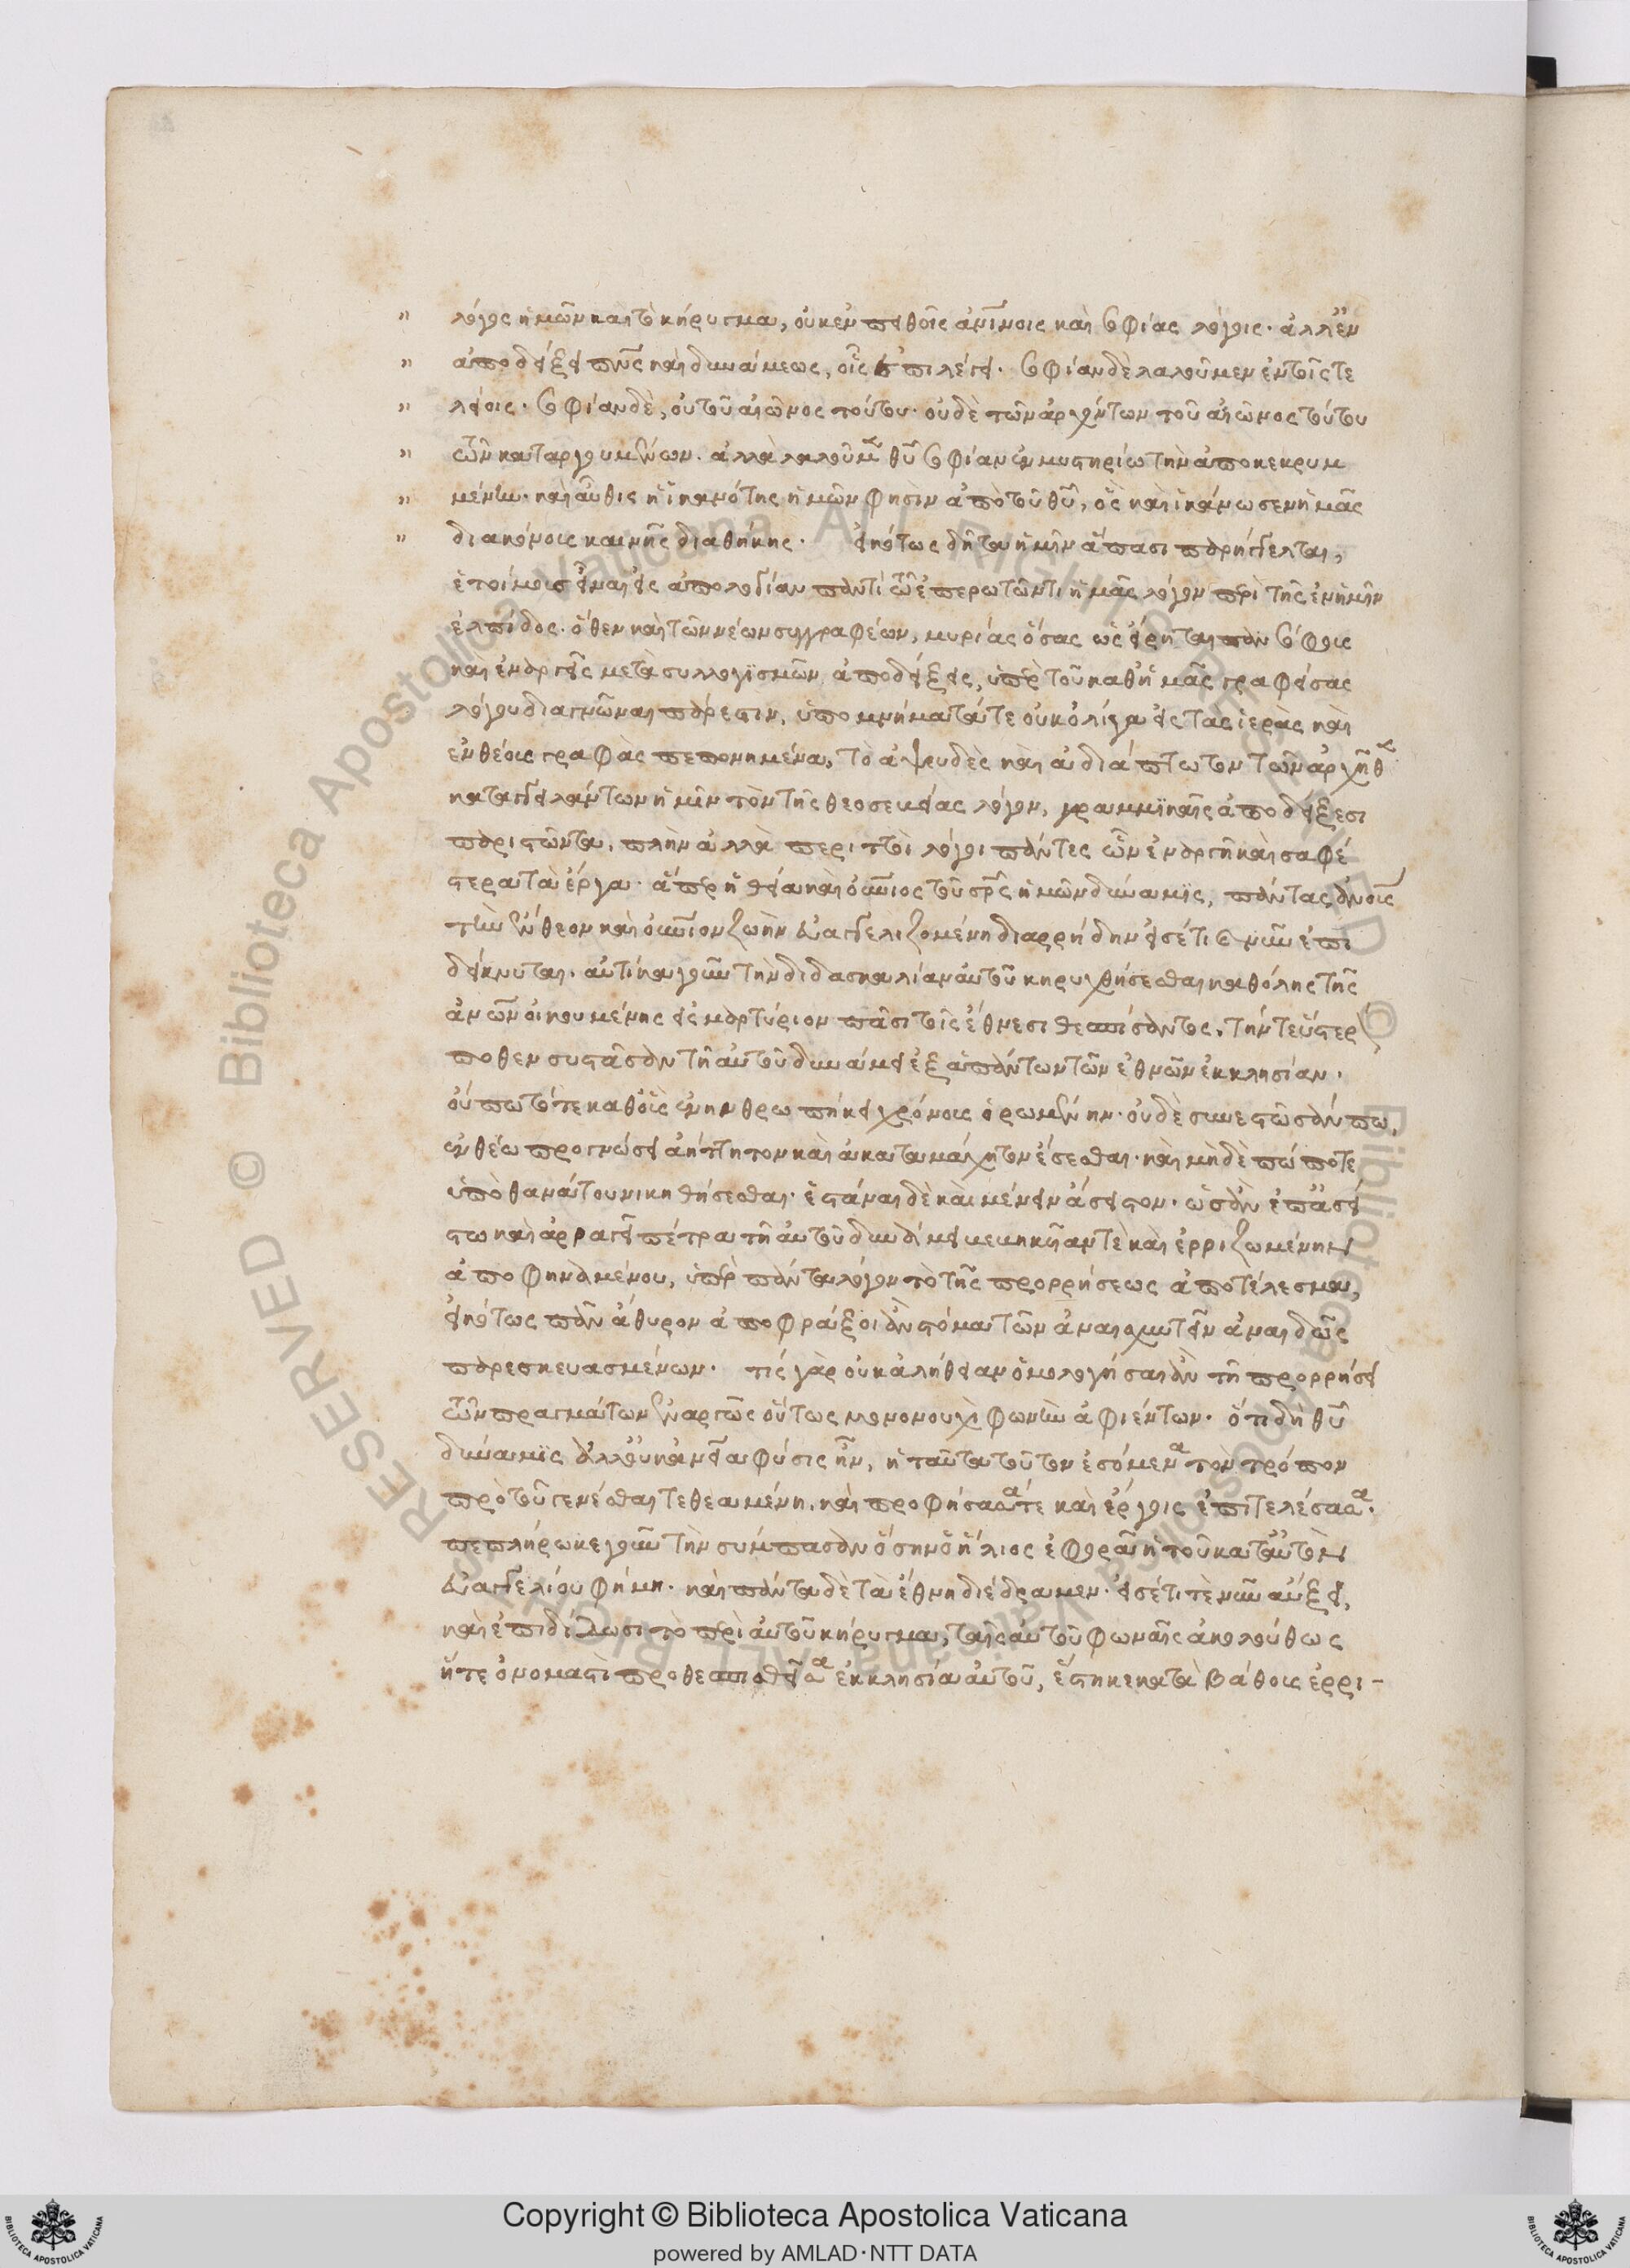 λόγος ἡμῶν καὶ τὸ κήρυγμα, οὐκ ἐν πειθοῖς ἀνίνοις καὶ σοφίας λόγοις· ἀλλ' ἐν
ἀποδείξει πνς καὶ δυνάμεως, οἷς ἐπιλέγει· σοφίαν δὲ λαλοῦμεν ἐν τοῖς τε
λείοις· σοφίαν δὲ, οὐ τοῦ αἰῶνος τούτου· οὐδὲ τῶν ἀρχόντων τοῦ αἰῶνος τούτου
τῶν καταργουμένων· ἀλλὰ λαλοῦμεν θυ σοφίαν ἐν μυστηρίω τὴν ἀποκεκρυμ
μένην· καὶ αὖθις ἡ ἱκανότης ἡμῶν φησὶν ἀπὸ τοῦ θυ, ὃς καὶ ἱκάνωσεν ἡμᾶς
διακόνους καινῆς διαθήκης· εἰκότως δῆτα ἡμῖν ἅπασι παρήγγελται,
ἑτοίμους εἶναι εἰς ἀπολογίαν παντὶ τῶ ἐπερωτῶντι ἡμᾶς λόγον περὶ τῆς ἐν ἡμῖν
ἐλπίδος· ὅθεν καὶ τῶν νέων συγγραφέων, μυρίας ὅσας ὡς εἴρηται πανσόφους
καὶ ἐναργεῖς μετὰ συλλογισμῶν ἀποδείξεις, ὑπὲρ τοῦ καθ' ἡμᾶς γραφείσας
λόγου διαγνῶναι πάρεστιν, ὑπομνήματά τε οὐκ ὀλίγα εἰς τὰς ἱερὰς καὶ
ἐνθέους γραφὰς πεπονημένα, τὸ ἀψευδὲς καὶ ἀδιάπτωτον τῶν ἀρχῆθεν
καταγγειλάντων ἡμῖν τὸν τῆς θεοσεβείας λόγον, γραμμϊκαῖς ἀποδείξεσι
παριστῶντα. πλὴν ἀλλὰ περιττοὶ λόγοι πάντες τῶν ἐναργῆ καὶ σαφέ
στερα τὰ ἔργα· ἅπερ ἡ θεία καὶ οὐράνιος τοῦ σρς ἡμῶν δύναμϊς, πάντας ἀνοις
τὴν ἔνθεον καὶ οὐράνιον ζωὴν εὐαγγελιζομένη διαρρήδην εἰσέτι καὶ νῦν ἐπι
δείκνυται. αὐτίκα γοῦν τὴν διδασκαλίαν αὐτοῦ κηρυχθήσεσθαι καθ' ὅλης τῆς
ἀνων οἰκουμένης εἰς μαρτύριον πᾶσι τοῖς ἔθνεσι θεσπίσαντος, τήν τε ὕστερόν
ποθεν συστᾶσαν τῆ αὐτοῦ δυνάμει ἐξ ἁπάντων τῶν ἐθνῶν ἐκκλησίαν·
οὔπω τότε καθ' οὓς ἐνηνθρωπήκει χρόνους ὁρωμένην· οὐδὲ συνεστῶσάν πω,
ἐν θέω προγνώσει ἀήττητον καὶ ἀκαταμάχητον ἔσεσθαι· καὶ μὴδὲ πώποτε
ὑπὸ θανάτου νικηθήσεσθαι· ἑστάναι δὲ καὶ μένειν ἄσειστον· ὡσὰν ἐπ' ἀσεί
στω καὶ ἀρραγεῖ πέτρα τῆ αὐτοῦ δυνάμει πεπηγυῖάν τε καὶ ἐρριζωμένην
ἀποφηναμένου, ὑπὲρ πάντα λόγον τὸ τῆς προρρήσεως ἀποτέλεσμα,
εἰκότως πᾶν ἄθυρον ἀποφράξοι ἂν στόμα τῶν ἀναισχυντεῖν ἀναιδῶς
παρεσκευασμένων· τίς γὰρ οὐκ ἀλήθειαν ὁμολογήσαι ἂν τῆ προρρήσει
τῶν πραγμάτων ἐναργῶς οὕτως μονονουχὶ φωνὴν ἀφιέντων· ὅτι δὴ θυ
δύναμϊς ἀλλ' οὐκ ἀνεία φύσις ἦν, ἡ ταῦτα τοῦτον ἐσόμενα τὸν τρόπον
πρὸ τοῦ γενέσθαι τεθεαμένη, καὶ προφήσασά τε καὶ ἔργοις ἐπιτελέσασα.
πεπλήρωκε γοῦν τὴν σύμπασαν ὅσην ὁ ἥλιος ἐφορᾶ ἡ τοῦ κατ' αὐτὸν
εὐαγγελίου φήμη· καὶ πάντα δὲ τὰ ἔθνη διέδραμεν· εἰσέτι τὲ νῦν αὔξει,
καὶ ἐπιδίδωσι τὸ περὶ αὐτοῦ κήρυγμα, ταῖς αὐτοῦ φωναῖς ἀκολούθως
ἥτε ὀνομαστὶ προθεσπισθεῖσα ἐκκλησία αὐτοῦ, ἕστηκε κατὰ βάθους ἐρρι-
Copyright © Biblioteca Apostolica Vaticana
powered by AMLAD·NTT DATA